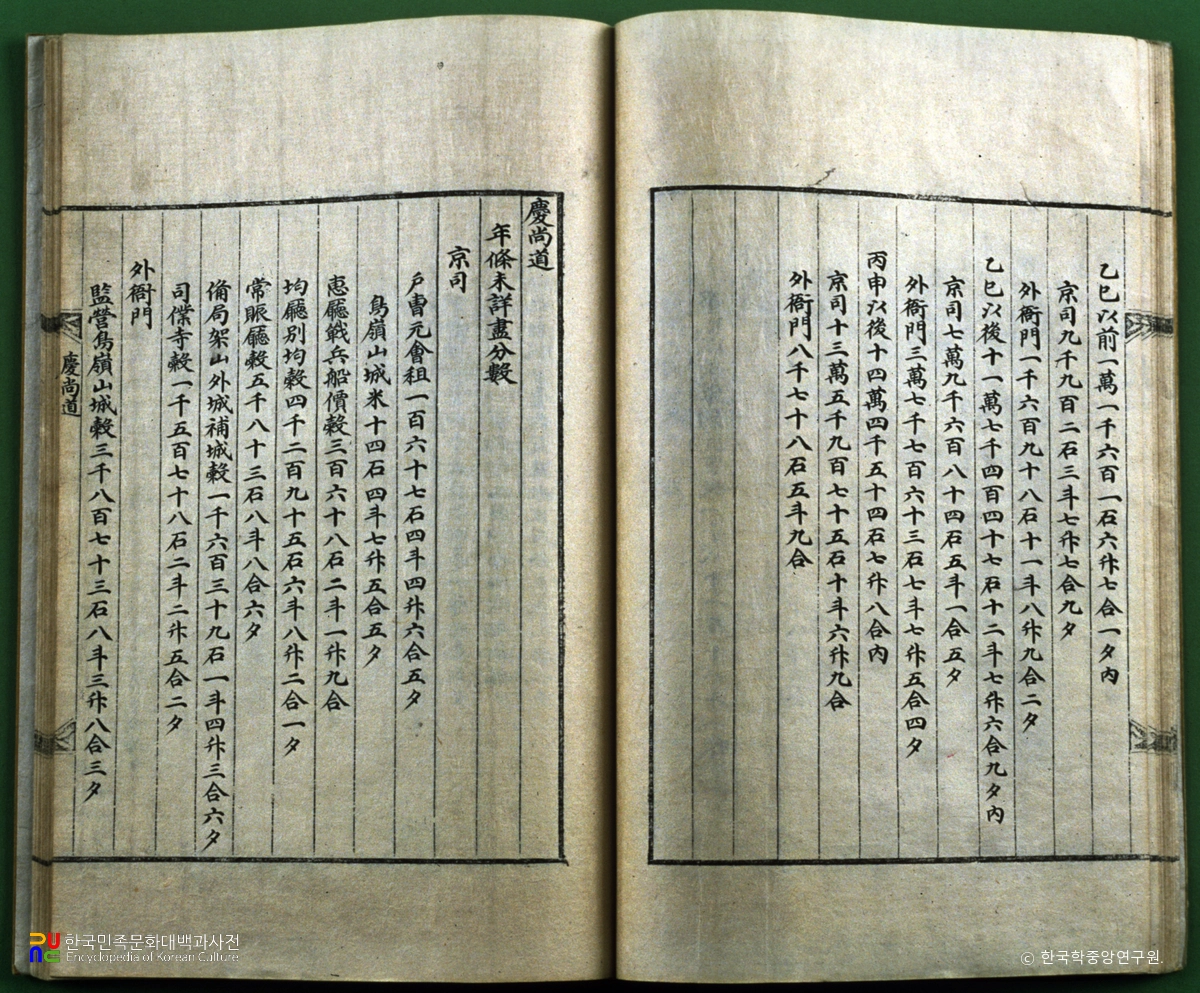 乙巳以前一萬一千六百一石六升七合一夕內
京司九千九百二石三斗七升七合九夕
外衙門一千六百九十八石十一斗八升九合二夕
乙巳以後十一萬七千四百四十七石十二斗七升六合九夕內
京司七萬九千六百八十四石五斗一合五夕
外衙門三萬七千七百六十三石七斗七升五合四夕
丙申以後十四萬四千五十四石七升八合內
京司十三萬五千九百七十五石十斗六升九合
外衙門八千七十八石五斗九合
慶尚道
年條未詳盡分數
京司
戶曹元會租一百六十七石四斗四升六合五夕
鳥嶺山城米十四石四斗七升五合五夕
惠廳戰兵船價穀三百六十八石二斗一升九合
均廳別均穀四千二百九十五石六斗八升二合一夕
常賑廳穀五千八十三石八斗八合六夕
備局架山外城補城穀一千六百三十九石一斗四升三合六夕
司僕寺穀一千五百七十八石二斗二升五合二夕
外衙門
監營鳥嶺山城穀三千八百七十三石八斗三升八合三夕
慶尚道
한국민족문화대백과사전
Encyclopedia of Korean Culture
© 한국학중앙연구원.